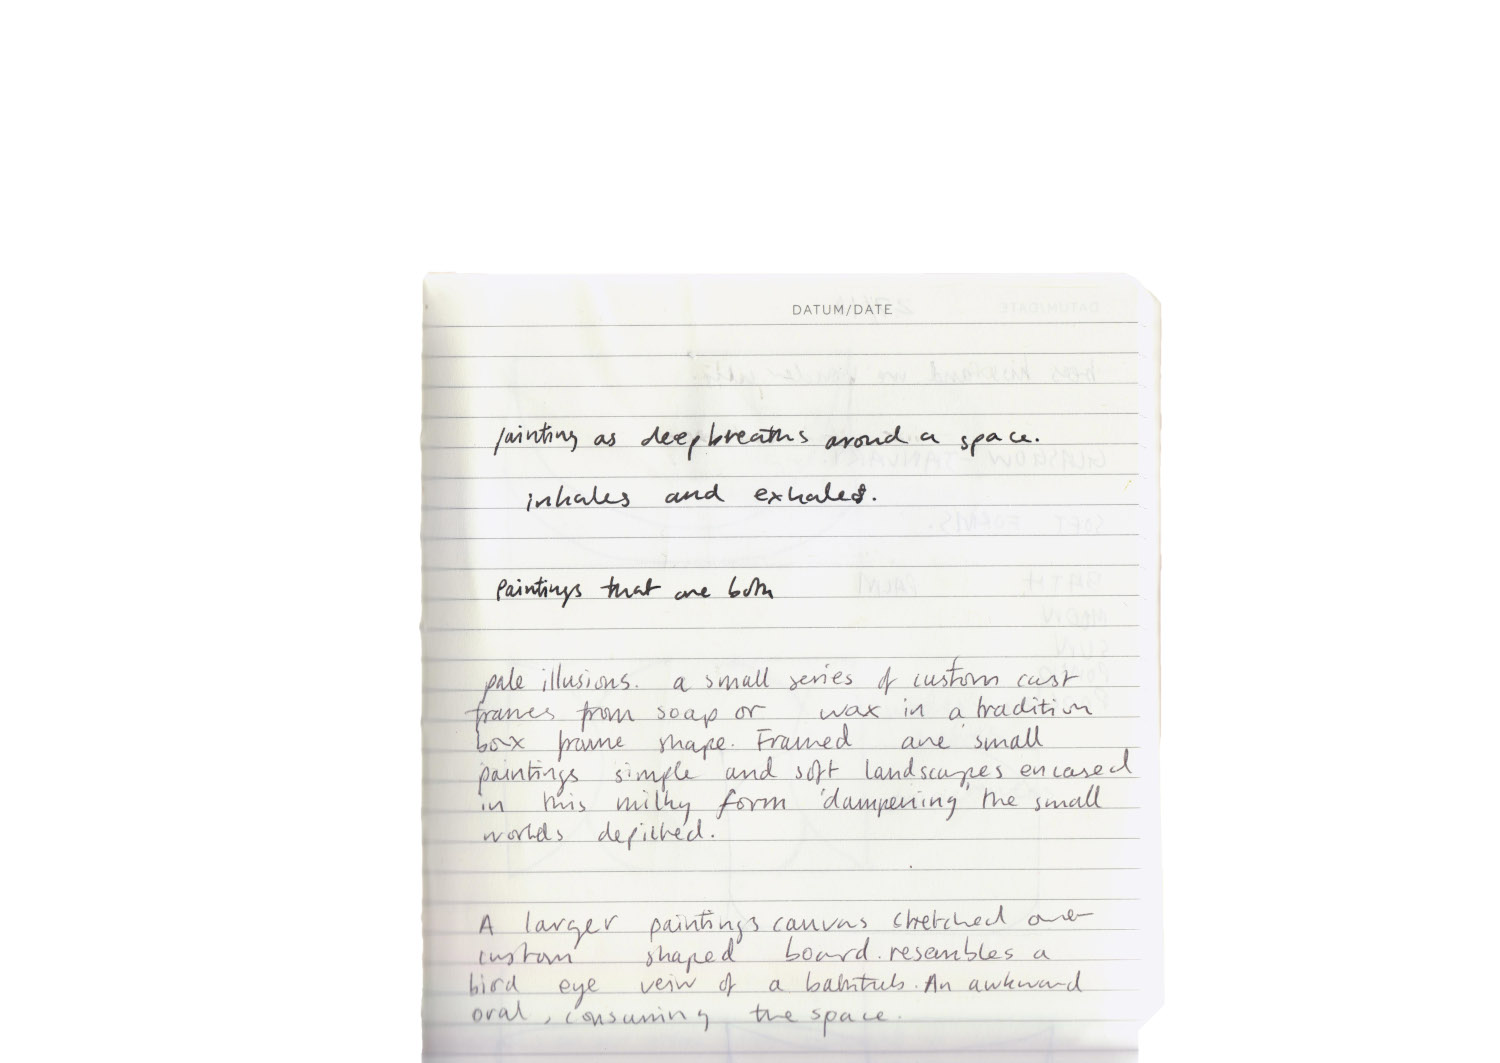 DATUM/DATE
painting as deep breaths around a space.
inhales and exhales.
Paintings that are both
pale illusions. a small series of custom cast
frames from soap or wax in a tradition
box frame shape. Framed are small
paintings simple and soft landscapes encased
in this milky form 'dampening' the small
worlds depicted.
A larger paintings canvas stretched over
custom shaped board. resembles a
bird eye veiw of a bathtub. An awkward
oval, consuming the space.